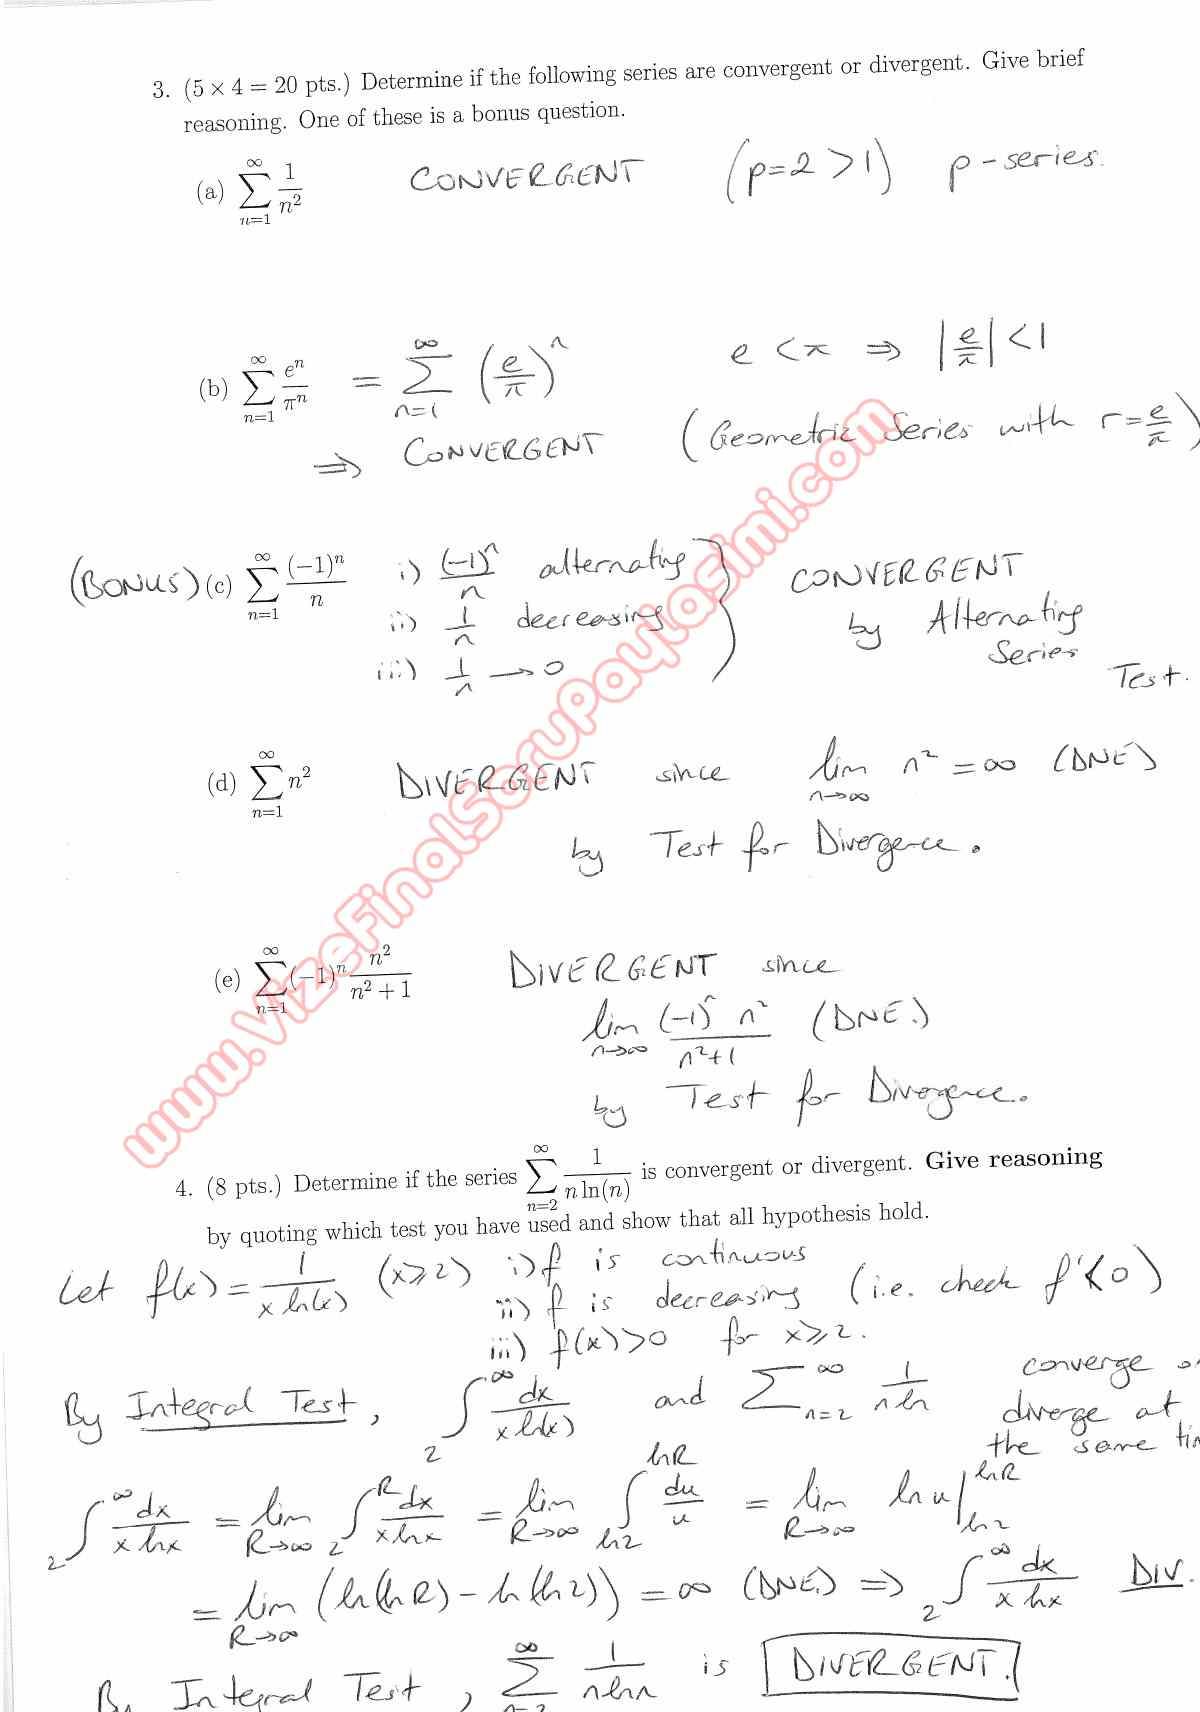 3. (5 × 4 = 20 pts.) Determine if the following series are convergent or divergent. Give brief
reasoning. One of these is a bonus question.
(a) ∑_{n=1}^{∞} 1/n² CONVERGENT (p=2>1) p-series.
(b) ∑_{n=1}^{∞} eⁿ/πⁿ = ∑_{n=1}^{∞} (e/π)ⁿ e<π ⇒ |e/π|<1
⇒ CONVERGENT (Geometric Series with r=e/π)
(BONUS) (c) ∑_{n=1}^{∞} (−1)ⁿ/n i) (-1)ⁿ/n alternating
ii) 1/n decreasing
iii) 1/n → 0
CONVERGENT
by Alternating
Series
Test.
(d) ∑_{n=1}^{∞} n² DIVERGENT since lim_{n→∞} n² = ∞ (DNE)
by Test for Divergence.
(e) ∑_{n=1}^{∞} (−1)ⁿ n²/(n² + 1) DIVERGENT since
lim_{n→∞} (-1)ⁿ n²/(n²+1) (DNE.)
by Test for Divergence.
4. (8 pts.) Determine if the series ∑_{n=2}^{∞} 1/(n ln(n)) is convergent or divergent. Give reasoning
by quoting which test you have used and show that all hypothesis hold.
Let f(x) = 1/(x ln(x)) (x≥2) i) f is continuous
ii) f is decreasing (i.e. check f'<0)
iii) f(x)>0 for x≥2.
By Integral Test, ∫_2^∞ dx/(x ln(x)) and ∑_{n=2}^{∞} 1/(n ln converge
diverge at
the same
∫_2^∞ dx/(x lnx) = lim_{R→∞} ∫_2^R dx/(x lnx) = lim_{R→∞} ∫_{ln2}^{lnR} du/u = lim_{R→∞} ln u|_{ln2}^{lnR}
= lim_{R→∞} (ln(lnR) - ln(ln2)) = ∞ (DNE.) ⇒ ∫_2^∞ dx/(x lnx) DIV.
By Integral Test, ∑_{n=2}^{∞} 1/(n lnn) is DIVERGENT.
www.VizeFinalSoruPaylasimi.com